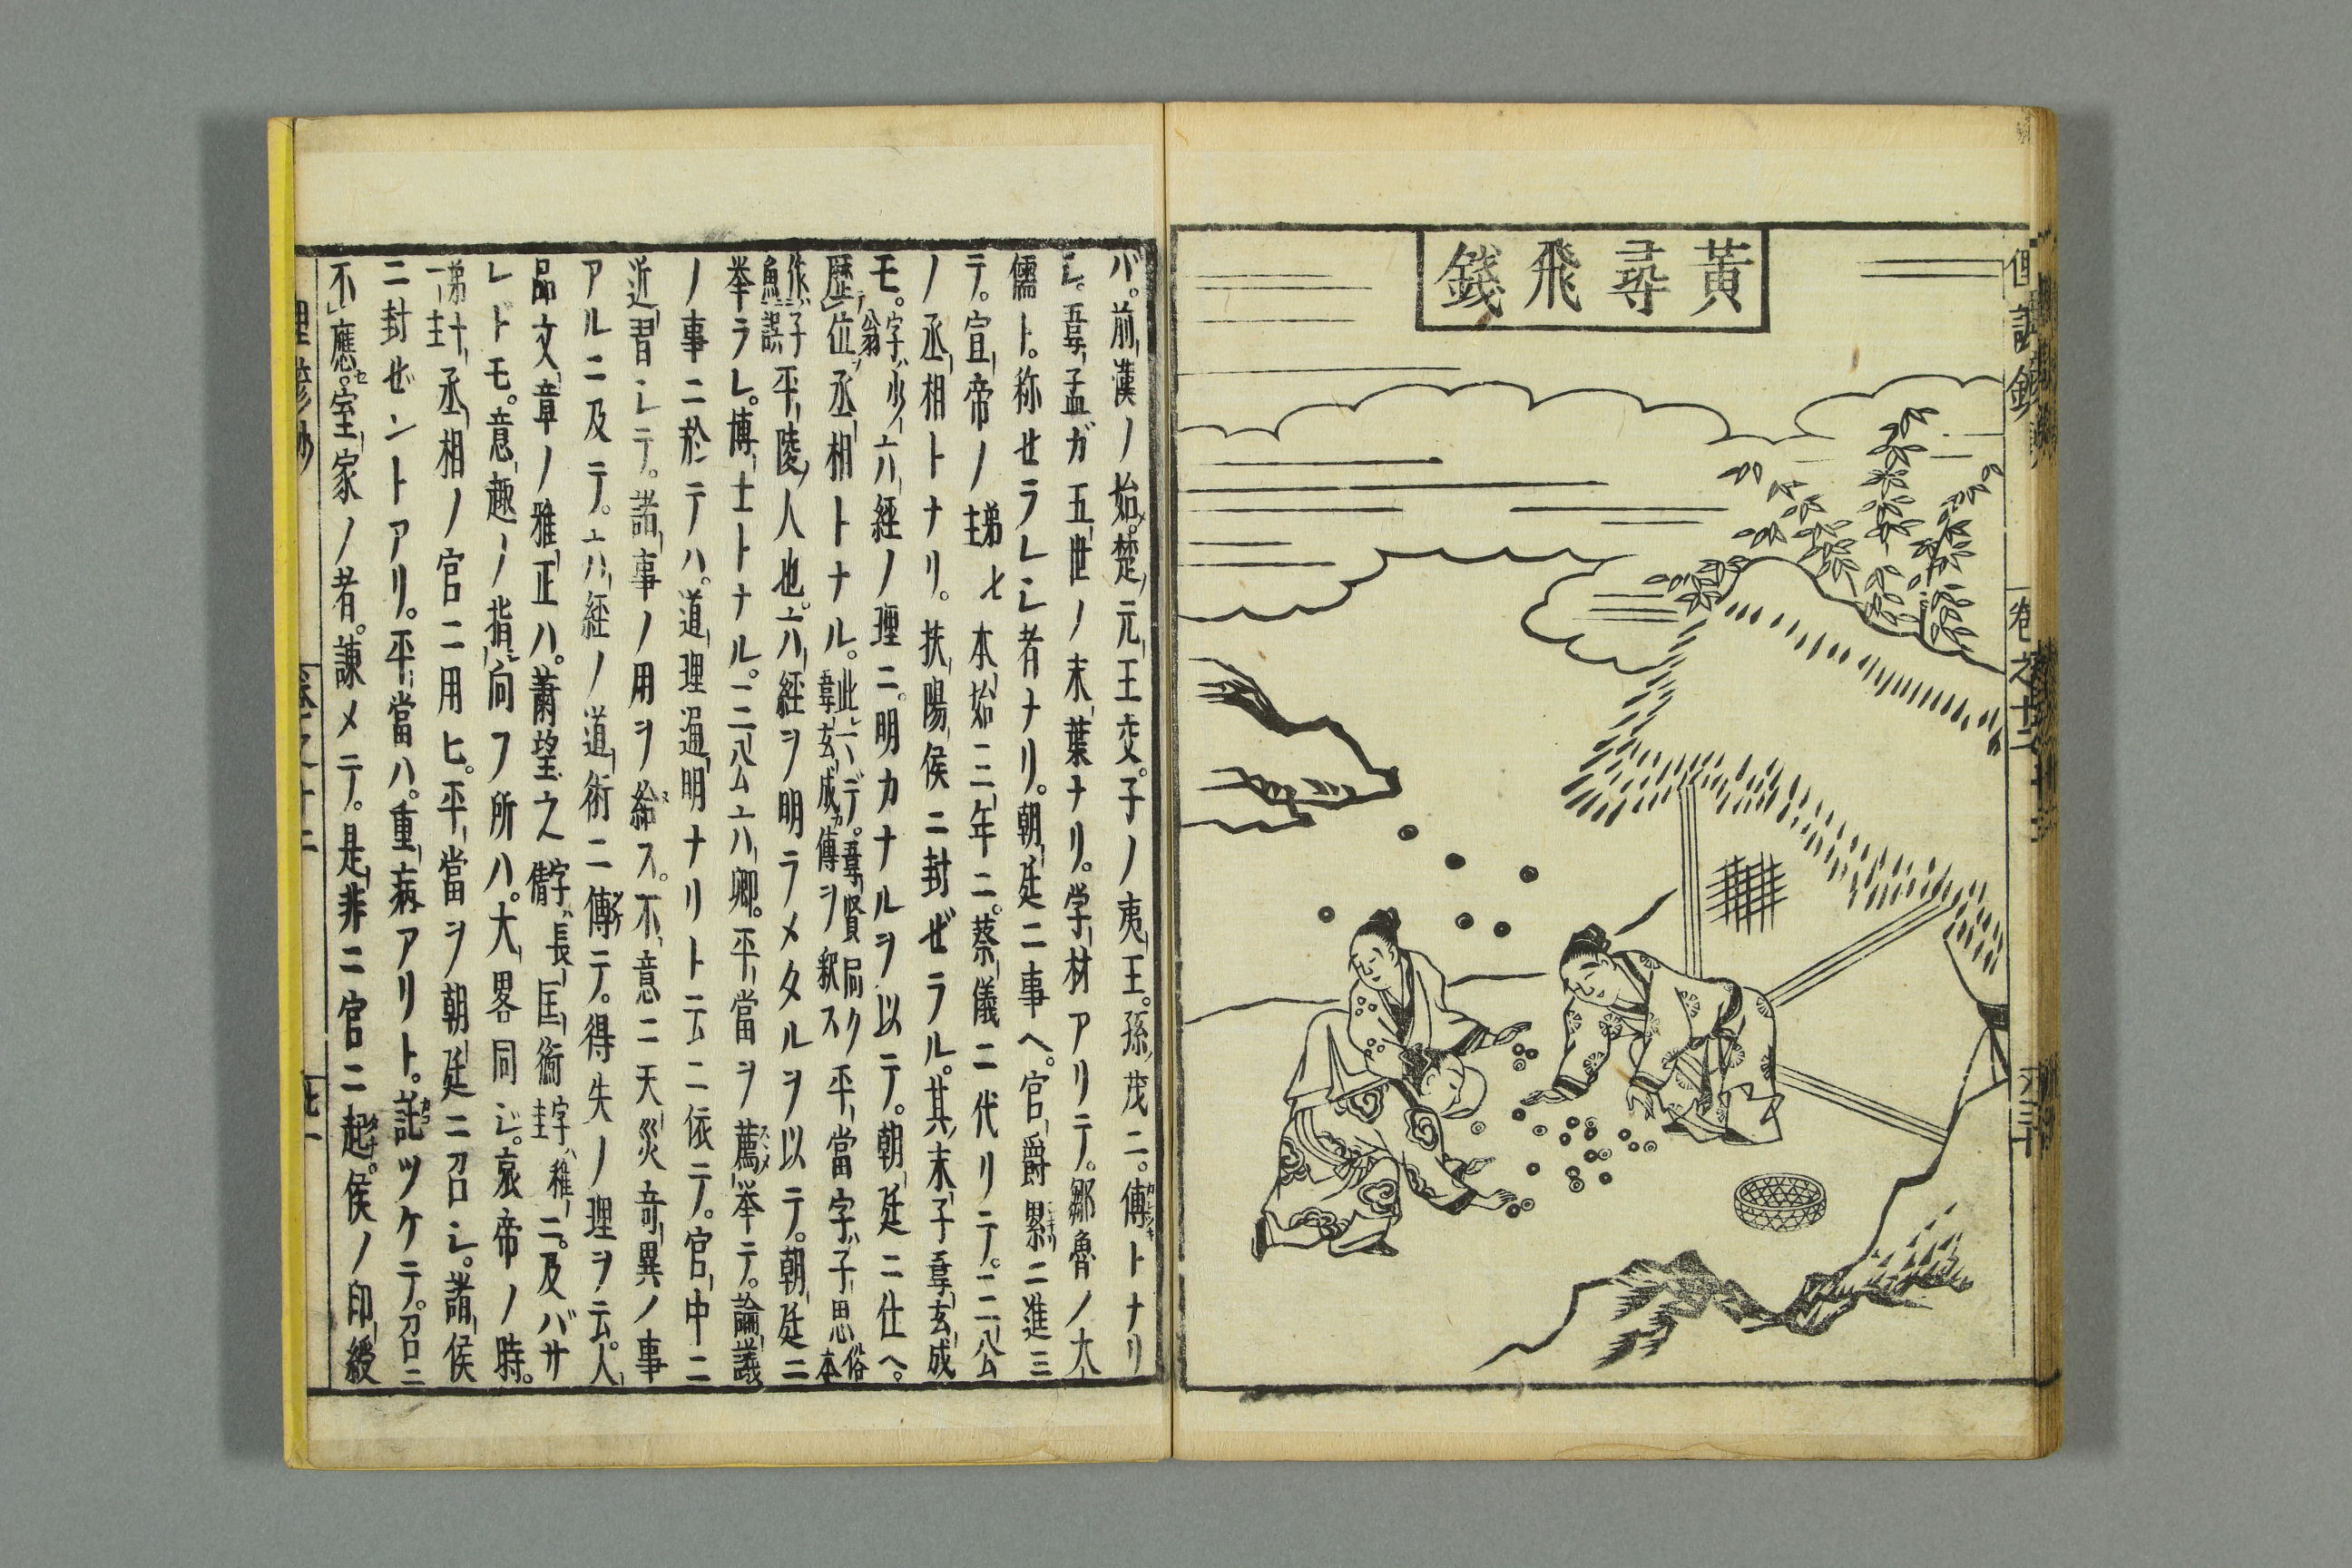 黃尋飛錢
卷之十二
バ。前漢ノ始。楚元王交。子ノ夷王。孫茂ニ。傅トナリ
シ。韋孟ガ五世ノ末葉ナリ。学材アリテ。鄒魯ノ大
儒ト。称セラレシ者ナリ。朝廷ニ事ヘ。官爵累ニ進ミ
テ。宣帝ノ 本始三年ニ。蔡儀ニ代リテ。三公
ノ丞相トナリ。扶陽侯ニ封ゼラル。其末子韋玄成
モ。字ハ少翁六経ノ理ニ。明カナルヲ以テ。朝廷ニ仕ヘ。
歴位丞相トナル。此ニハデ。韋賢局ク韋玄成傳ヲ釈ス 平當字ハ子思俗本
作子魚誤 平陵人也。六経ヲ明ラメタルヲ以テ。朝廷ニ
挙ラレ。博士トナル。三公六卿。平當ヲ薦挙テ。論議
ノ事ニ於テハ。道理通明ナリト云ニ依テ。官中ニ
近君シテ。諸事ノ用ヲ給ス。不意ニ天災奇異ノ事
アルニ及テ。六経ノ道術ニ傅テ。得失ノ理ヲ云。人
品文章ノ雅正ハ。蕭望之字ハ長倩匡衡字ハ稚圭ニ。及バサ
レドモ。意趣ノ指向フ所ハ。大畧同ジ。哀帝ノ時。
丞相ノ官ニ用ヒ。平當ヲ朝廷ニ召シ。諸侯
ニ封ゼントアリ。平當ハ。重病アリト。託ツケテ。召ニ
不應。室家ノ者。諫メテ。是非ニ官ニ起。侯ノ印綬